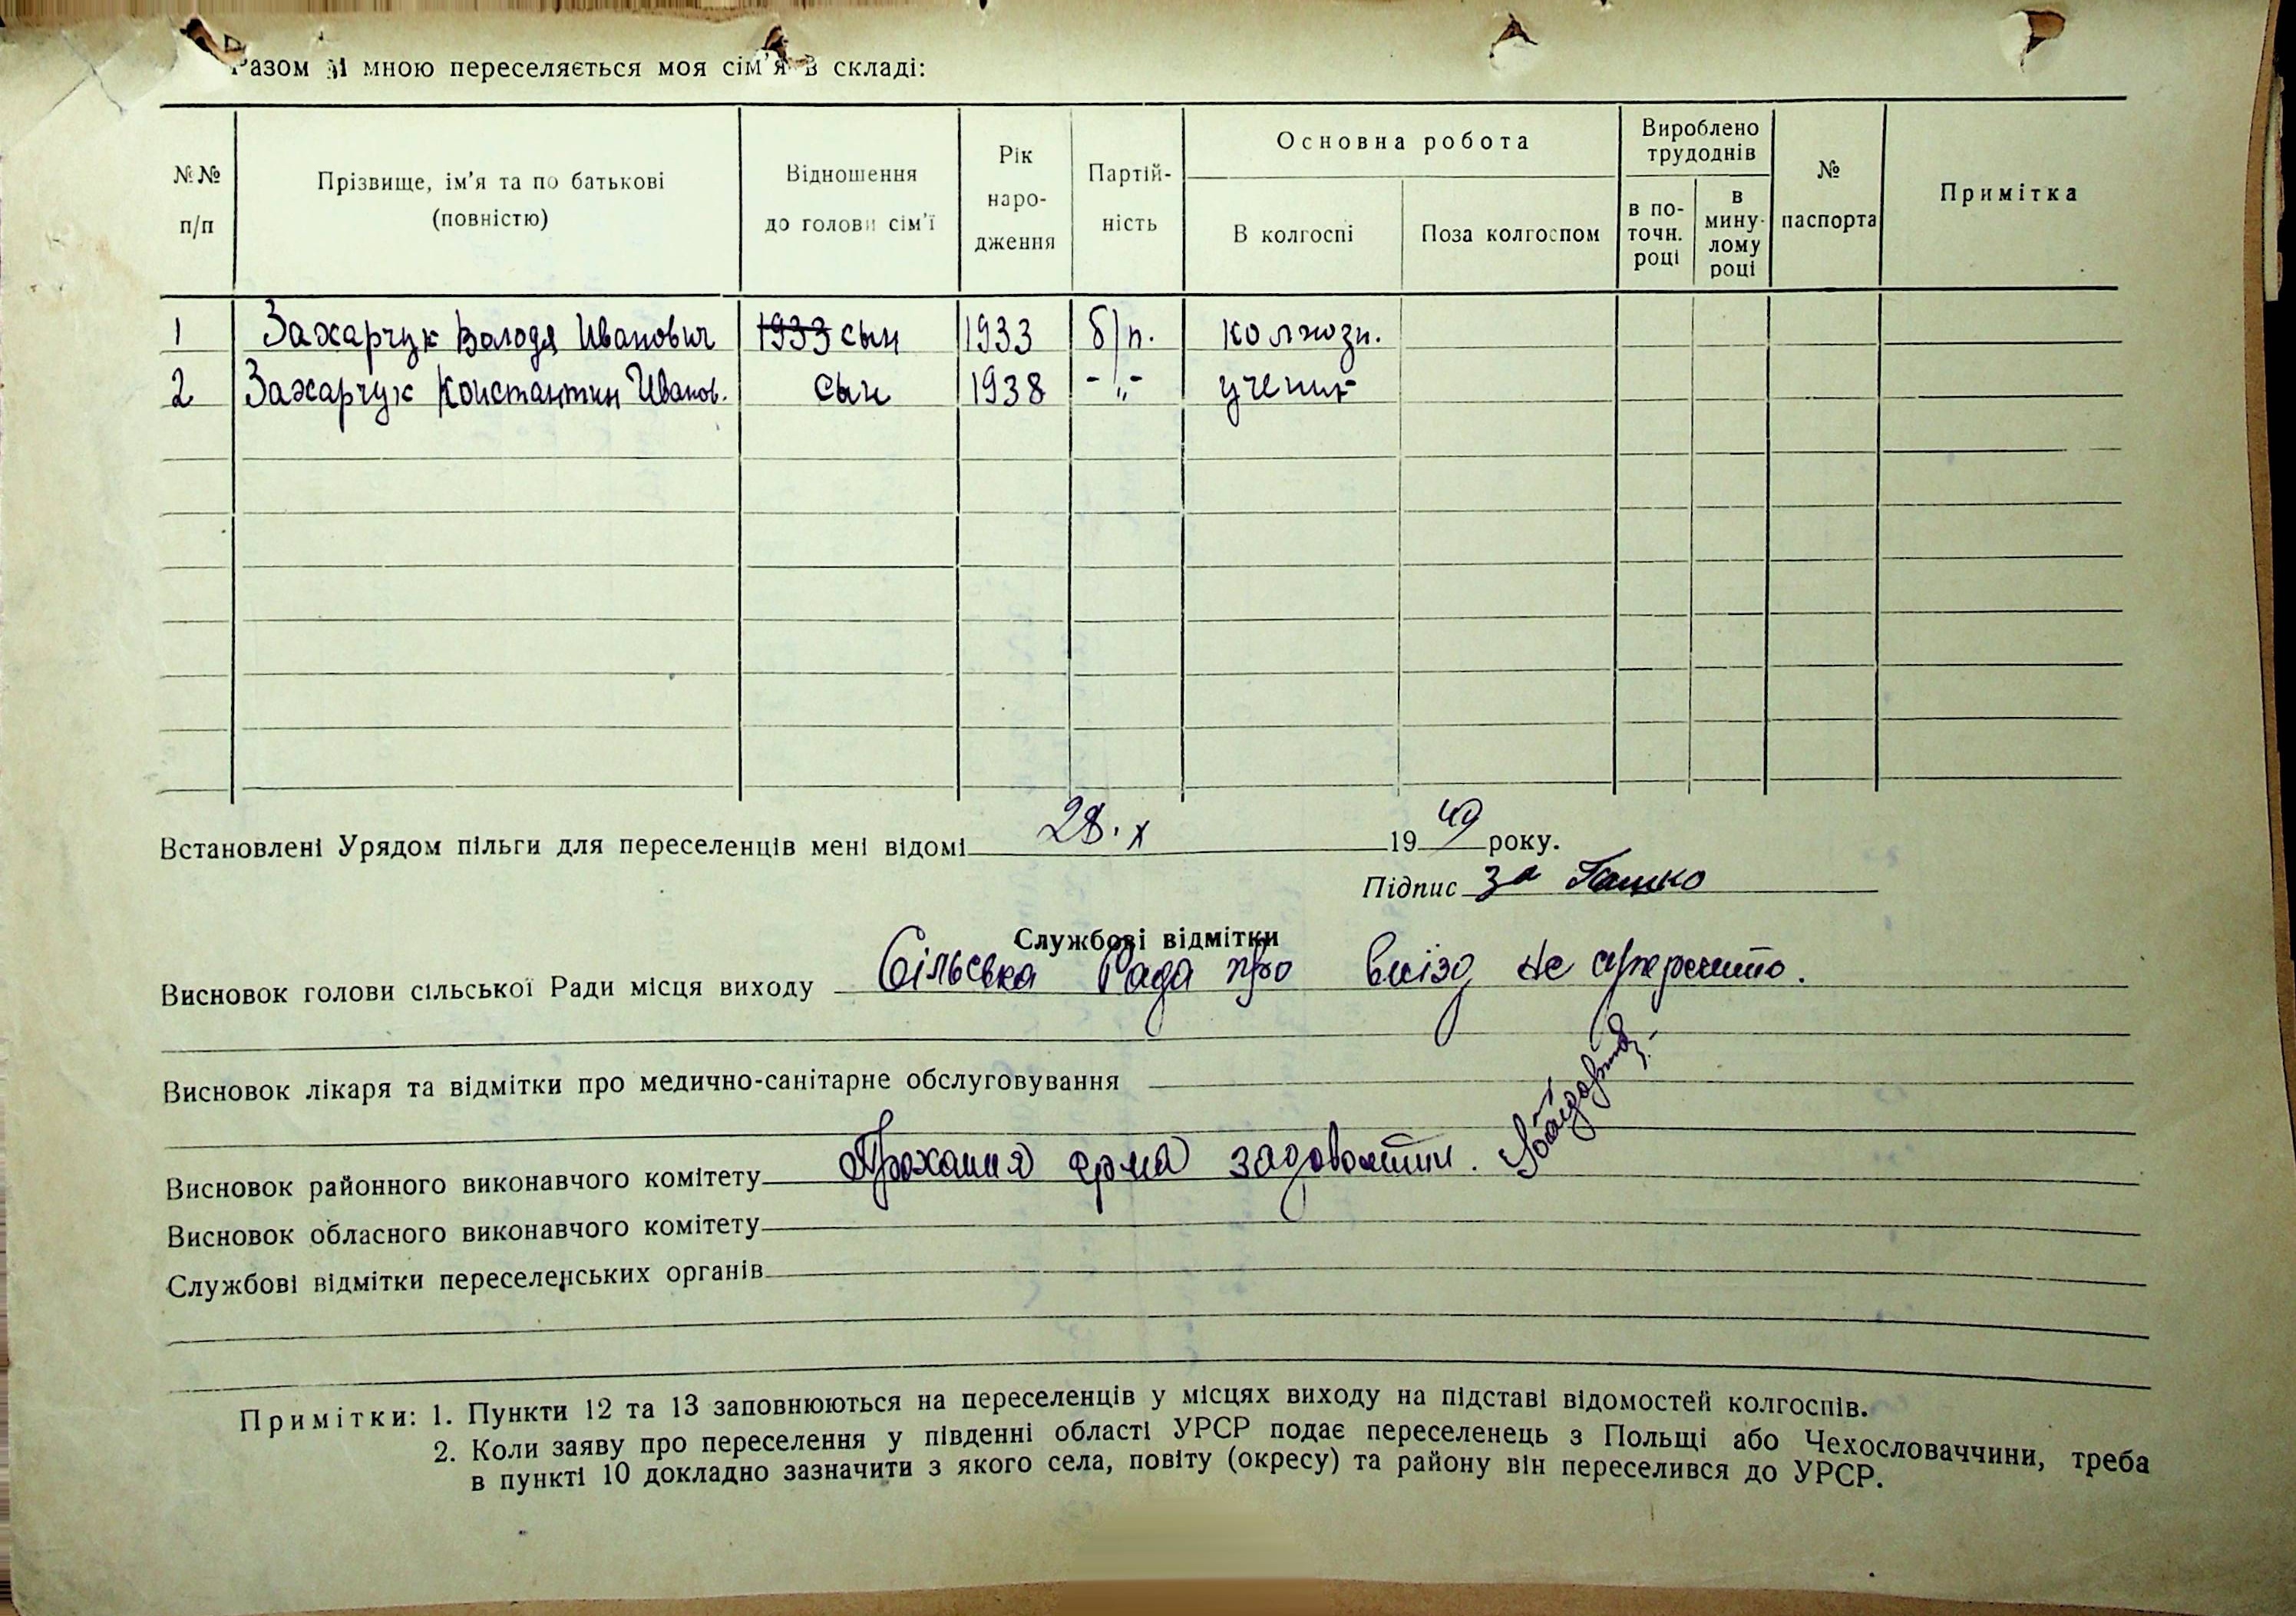 Разом зі мною переселяється моя сім'я в складі:
№№ п/п
Прізвище, ім'я та по батькові (повністю)
Відношення до голови сім'ї
Рік народження
Партійність
Основна робота
В колгоспі
Поза колгоспом
Вироблено трудоднів
в поточн. році
в минулому році
№ паспорта
Примітка
1 Захарчук Володя Иванович 1933 сын 1933 б/п. колхозн.
2 Захарчук Константин Иванов. сын 1938 -"- ученик
Встановлені Урядом пільги для переселенців мені відомі 28.X 1949 року.
Підпис за
Службові відмітки
Висновок голови сільської Ради місця виходу Сільська Рада про виїзд не
Висновок лікаря та відмітки про медично-санітарне обслуговування
Висновок районного виконавчого комітету Прохання задовольнити.
Висновок обласного виконавчого комітету
Службові відмітки переселенських органів
Примітки: 1. Пункти 12 та 13 заповнюються на переселенців у місцях виходу на підставі відомостей колгоспів.
2. Коли заяву про переселення у південні області УРСР подає переселенець з Польщі або Чехословаччини, треба
в пункті 10 докладно зазначити з якого села, повіту (окресу) та району він переселився до УРСР.